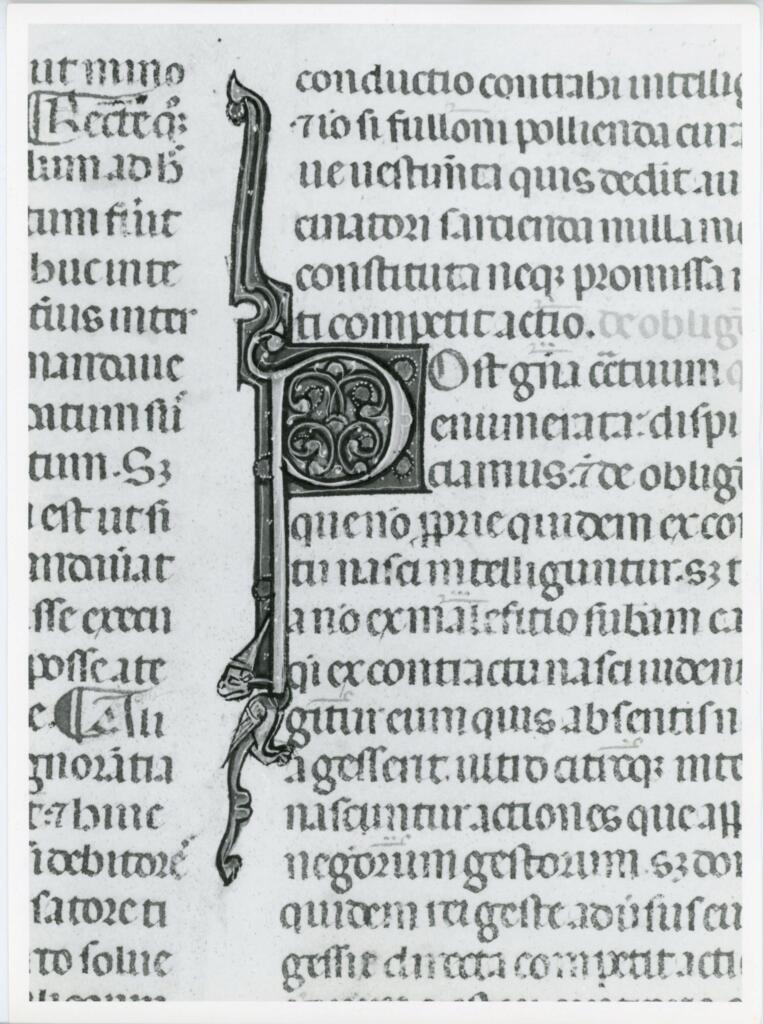 ut mino
Recte q̃
lum ad h̃
tum fiũt
buc inte
tius inter
mandaue
ditum sũ
tum. Sꝫ
est ut si
mandaũat
sse execu
posse ate
e. Tali
gnorãtia
t: ⁊ hinc
si debitorẽ
satore ti
to solue
conductio contrahi intellig
⁊io si fulloni pollienda cura
ue uestim̃ta quis dedit. au
cinatori sarcienda nulla me
constituta neqꝫ promissa
ti competit actio. de obligõ
Post gñia c̃tuum
enumerata: dispi
ciamus: ⁊ de obligõ
que nõ ꝓprie quidem ex con
tu nasci intelliguntur. sꝫ t
a nõ ex malefitio subim ca
q̃i ex contractu nasci uident
gitur cum quis absentis n
a gesserit. ultro citroqꝫ inte
nascuntur actiones que app
negotiorum gestorum. sꝫ do
quidem rei geste adũsus eu
gessit directa competit acti